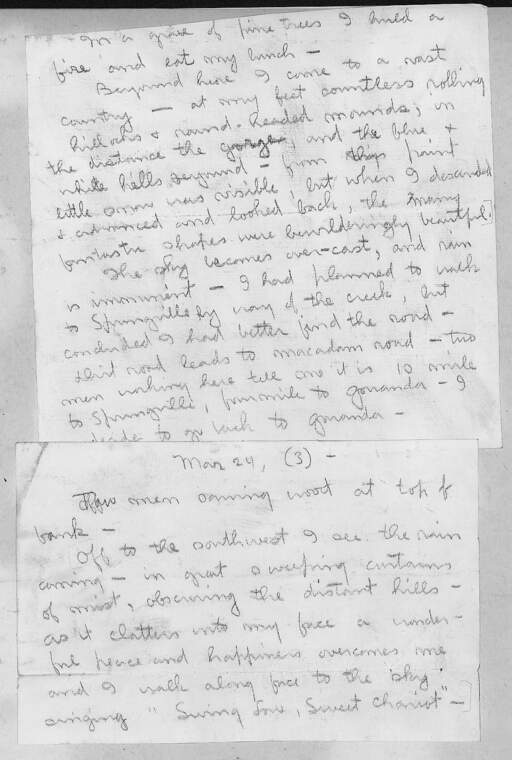 In a grove of pine trees I build a
fire and eat my lunch -
Beyond here I come to a vast
country - at my feet countless rolling
hillocks & round-headed mounds; in
the distance the gorge, and the blue &
white hills beyond - from this point
little snow was visible, but when I descended
& advanced and looked back, the snowy
fantastic shapes were bewilderingly beautiful.]
The sky becomes over-cast, and rain
is imminent - I had planned to walk
to Springville by way of the creek, but
concluded I had better find the road -
dirt road leads to macadam road - two
men working here tell me it is 10 mile
to Springville, four mile to Gowanda - I
decide to go back to Gowanda -
Mar 24, (3) -
men sawing wood at top of
bank -
Off to the southwest I see the rain
coming - in great sweeping curtains
of mist, obscuring the distant hills -
as it clatters into my face a wonder-
ful peace and happiness overcomes me
and I walk along face to the sky
singing "Swing Low, Sweet Chariot" -]